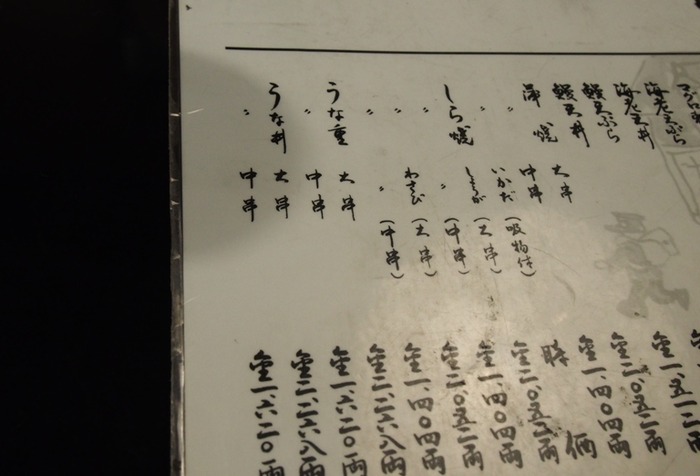 海老天ぷら
海老天丼
鰻天ぷら
鰻天丼
蒲焼 大串 金二、〇五二両
〃 中串 金一、四〇〇両
〃 いかだ（吸物付） 時価
しら焼 しょうが（大串） 金二、〇五二両
〃 〃（中串） 金一、四〇〇両
〃 わさび（大串） 金二、〇五二両
〃 〃（中串） 金一、四〇〇両
うな重 大串 金二、二六八両
〃 中串 金一、六二〇両
うな丼 大串 金二、二六八両
〃 中串 金一、六二〇両